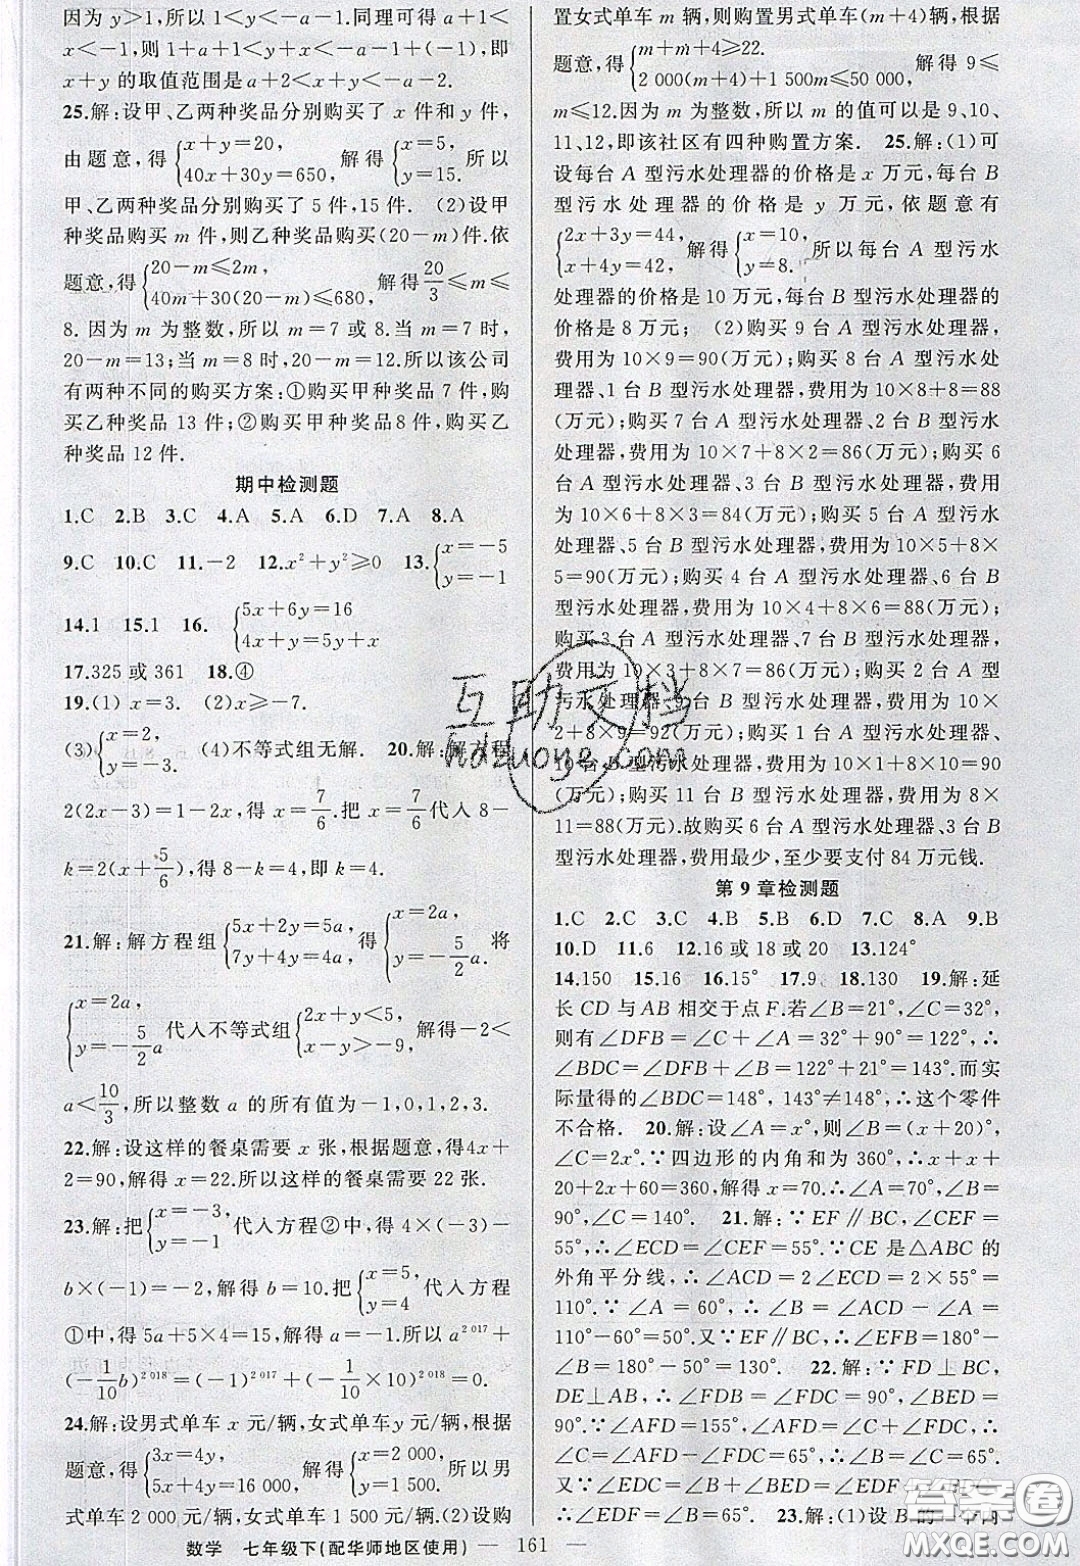 因为 y>1,所以 1<y<-a-1.同理可得 a+1<
x<-1,则 1+a+1<x+y<-a-1+(-1),即
x+y 的取值范围是 a+2<x+y<-a-2.
25.解:设甲、乙两种奖品分别购买了 x 件和 y 件,
由题意,得{x+y=20, 40x+30y=650, 解得{x=5, y=15. 所以
甲、乙两种奖品分别购买了 5 件,15 件. (2)设甲
种奖品购买 m 件,则乙种奖品购买(20-m)件.依
题意,得{20-m≤2m, 40m+30(20-m)≤680, 解得 20/3≤m≤
8.因为 m 为整数,所以 m=7 或 8.当 m=7 时,
20-m=13;当 m=8 时,20-m=12.所以该公司
有两种不同的购买方案:①购买甲种奖品 7 件,购
买乙种奖品 13 件;②购买甲种奖品 8 件,购买乙
种奖品 12 件.
期中检测题
1.C 2.B 3.C 4.A 5.A 6.D 7.A 8.A
9.C 10.C 11.-2 12.x²+y²≥0 13.{x=-5 y=-1
14.1 15.1 16.{5x+6y=16 4x+y=5y+x
17.325 或 361 18.④
19.(1) x=3. (2)x≥-7.
(3){x=2, y=-3. (4)不等式组无解. 20.解:解方程
2(2x-3)=1-2x,得 x=7/6.把 x=7/6代入 8-
k=2(x+5/6),得 8-k=4,即 k=4.
21.解:解方程组{5x+2y=5a, 7y+4y=4a, 得{x=2a, y=-5/2a. 将
{x=2a, y=-5/2a 代入不等式组{2x+y<5, x-y>-9, 解得-2<
a<10/3,所以整数 a 的所有值为-1,0,1,2,3.
22.解:设这样的餐桌需要 x 张,根据题意,得4x+
2=90,解得 x=22.所以这样的餐桌需要 22 张.
23.解:把{x=-3, y=-1 代入方程②中,得 4×(-3)-
b×(-1)=-2,解得 b=10.把{x=5, y=4 代入方程
①中,得 5a+5×4=15,解得 a=-1.所以 a²⁰¹⁷+
(-1/10b)²⁰¹⁸=(-1)²⁰¹⁷+(-1/10×10)²⁰¹⁸=0.
24.解:设男式单车 x 元/辆,女式单车y 元/辆,根据
题意,得{3x=4y, 5x+4y=16 000, 解得{x=2 000, y=1 500. 所以男
式单车 2 000 元/辆,女式单车 1 500 元/辆.(2)设购
置女式单车 m 辆,则购置男式单车(m+4)辆,根据
题意,得{m+m+4≥22. 2 000(m+4)+1 500m≤50 000, 解得 9≤
m≤12.因为 m 为整数,所以 m 的值可以是 9、10、
11、12,即该社区有四种购置方案. 25.解:(1)可
设每台 A 型污水处理器的价格是 x 万元,每台 B
型污水处理器的价格是 y 万元,依题意有
{2x+3y=44, x+4y=42, 解得{x=10, y=8. 所以每台 A 型污水
处理器的价格是 10 万元,每台 B 型污水处理器的
价格是 8 万元; (2)购买 9 台 A 型污水处理器,
费用为 10×9=90(万元);购买 8 台 A 型污水处
理器、1 台 B 型污水处理器,费用为 10×8+8=88
(万元);购买 7 台 A 型污水处理器、2 台 B 型污水
处理器,费用为 10×7+8×2=86(万元);购买 6
台 A 型污水处理器、3 台 B 型污水处理器,费用为
10×6+8×3=84(万元);购买 5 台 A 型污水处理
器、5 台 B 型污水处理器,费用为 10×5+8×
5=90(万元);购买 4 台 A 型污水处理器、6 台 B
型污水处理器,费用为 10×4+8×6=88(万元);
购买 3 台 A 型污水处理器、7 台 B 型污水处理器,
费用为 10×3+8×7=86(万元);购买 2 台 A 型
污水处理器、9 台 B 型污水处理器,费用为 10×
2+8×9=92(万元);购买 1 台 A 型污水处理器、
10 台 B 型污水处理器,费用为 10×1+8×10=90
(万元);购买 11 台 B 型污水处理器,费用为 8×
11=88(万元).故购买 6 台 A 型污水处理器、3 台
B 型污水处理器,费用最少,至少要支付 84 万元钱.
第 9 章检测题
1.C 2.C 3.C 4.B 5.B 6.D 7.C 8.A 9.B
10.D 11.6 12.16 或 18 或 20 13.124°
14.150 15.16 16.15° 17.9 18.130 19.解:延
长 CD 与 AB 相交于点 F.若∠B=21°,∠C=32°,
则有∠DFB=∠C+∠A=32°+90°=122°,∴
∠BDC=∠DFB+∠B=122°+21°=143°.而实
际量得的∠BDC=148°,143°≠148°,∴这个零件
不合格. 20.解:设∠A=x°,则∠B=(x+20)°,
∠C=2x°.∵四边形的内角和为 360°,∴x+x+
20+2x+60=360,解得 x=70.∴∠A=70°,∠B=
90°,∠C=140°. 21.解:∵EF∥BC,∠CEF=
55°,∴∠ECD=∠CEF=55°.∵CE 是△ABC 的
外角平分线,∴∠ACD=2∠ECD=2×55°=
110°.∵∠A=60°,∴∠B=∠ACD-∠A=
110°-60°=50°.又∵EF∥BC,∴∠EFB=180°-
∠B=180°-50°=130°. 22.解:∵FD⊥BC,
DE⊥AB,∴∠FDB=∠FDC=90°,∠BED=
90°.∵∠AFD=155°,∠AFD=∠C+∠FDC,∴
∠C=∠AFD-∠FDC=65°,∴∠B=∠C=65°.
又∵∠EDC=∠B+∠BED=∠EDF+∠FDC,
∴∠EDF=∠B=65°. 23.解:(1)设
数学 七年级下(配华师地区使用) — 161 —
互助文档
hdzuoye.com
答案圈
MXQE.COM